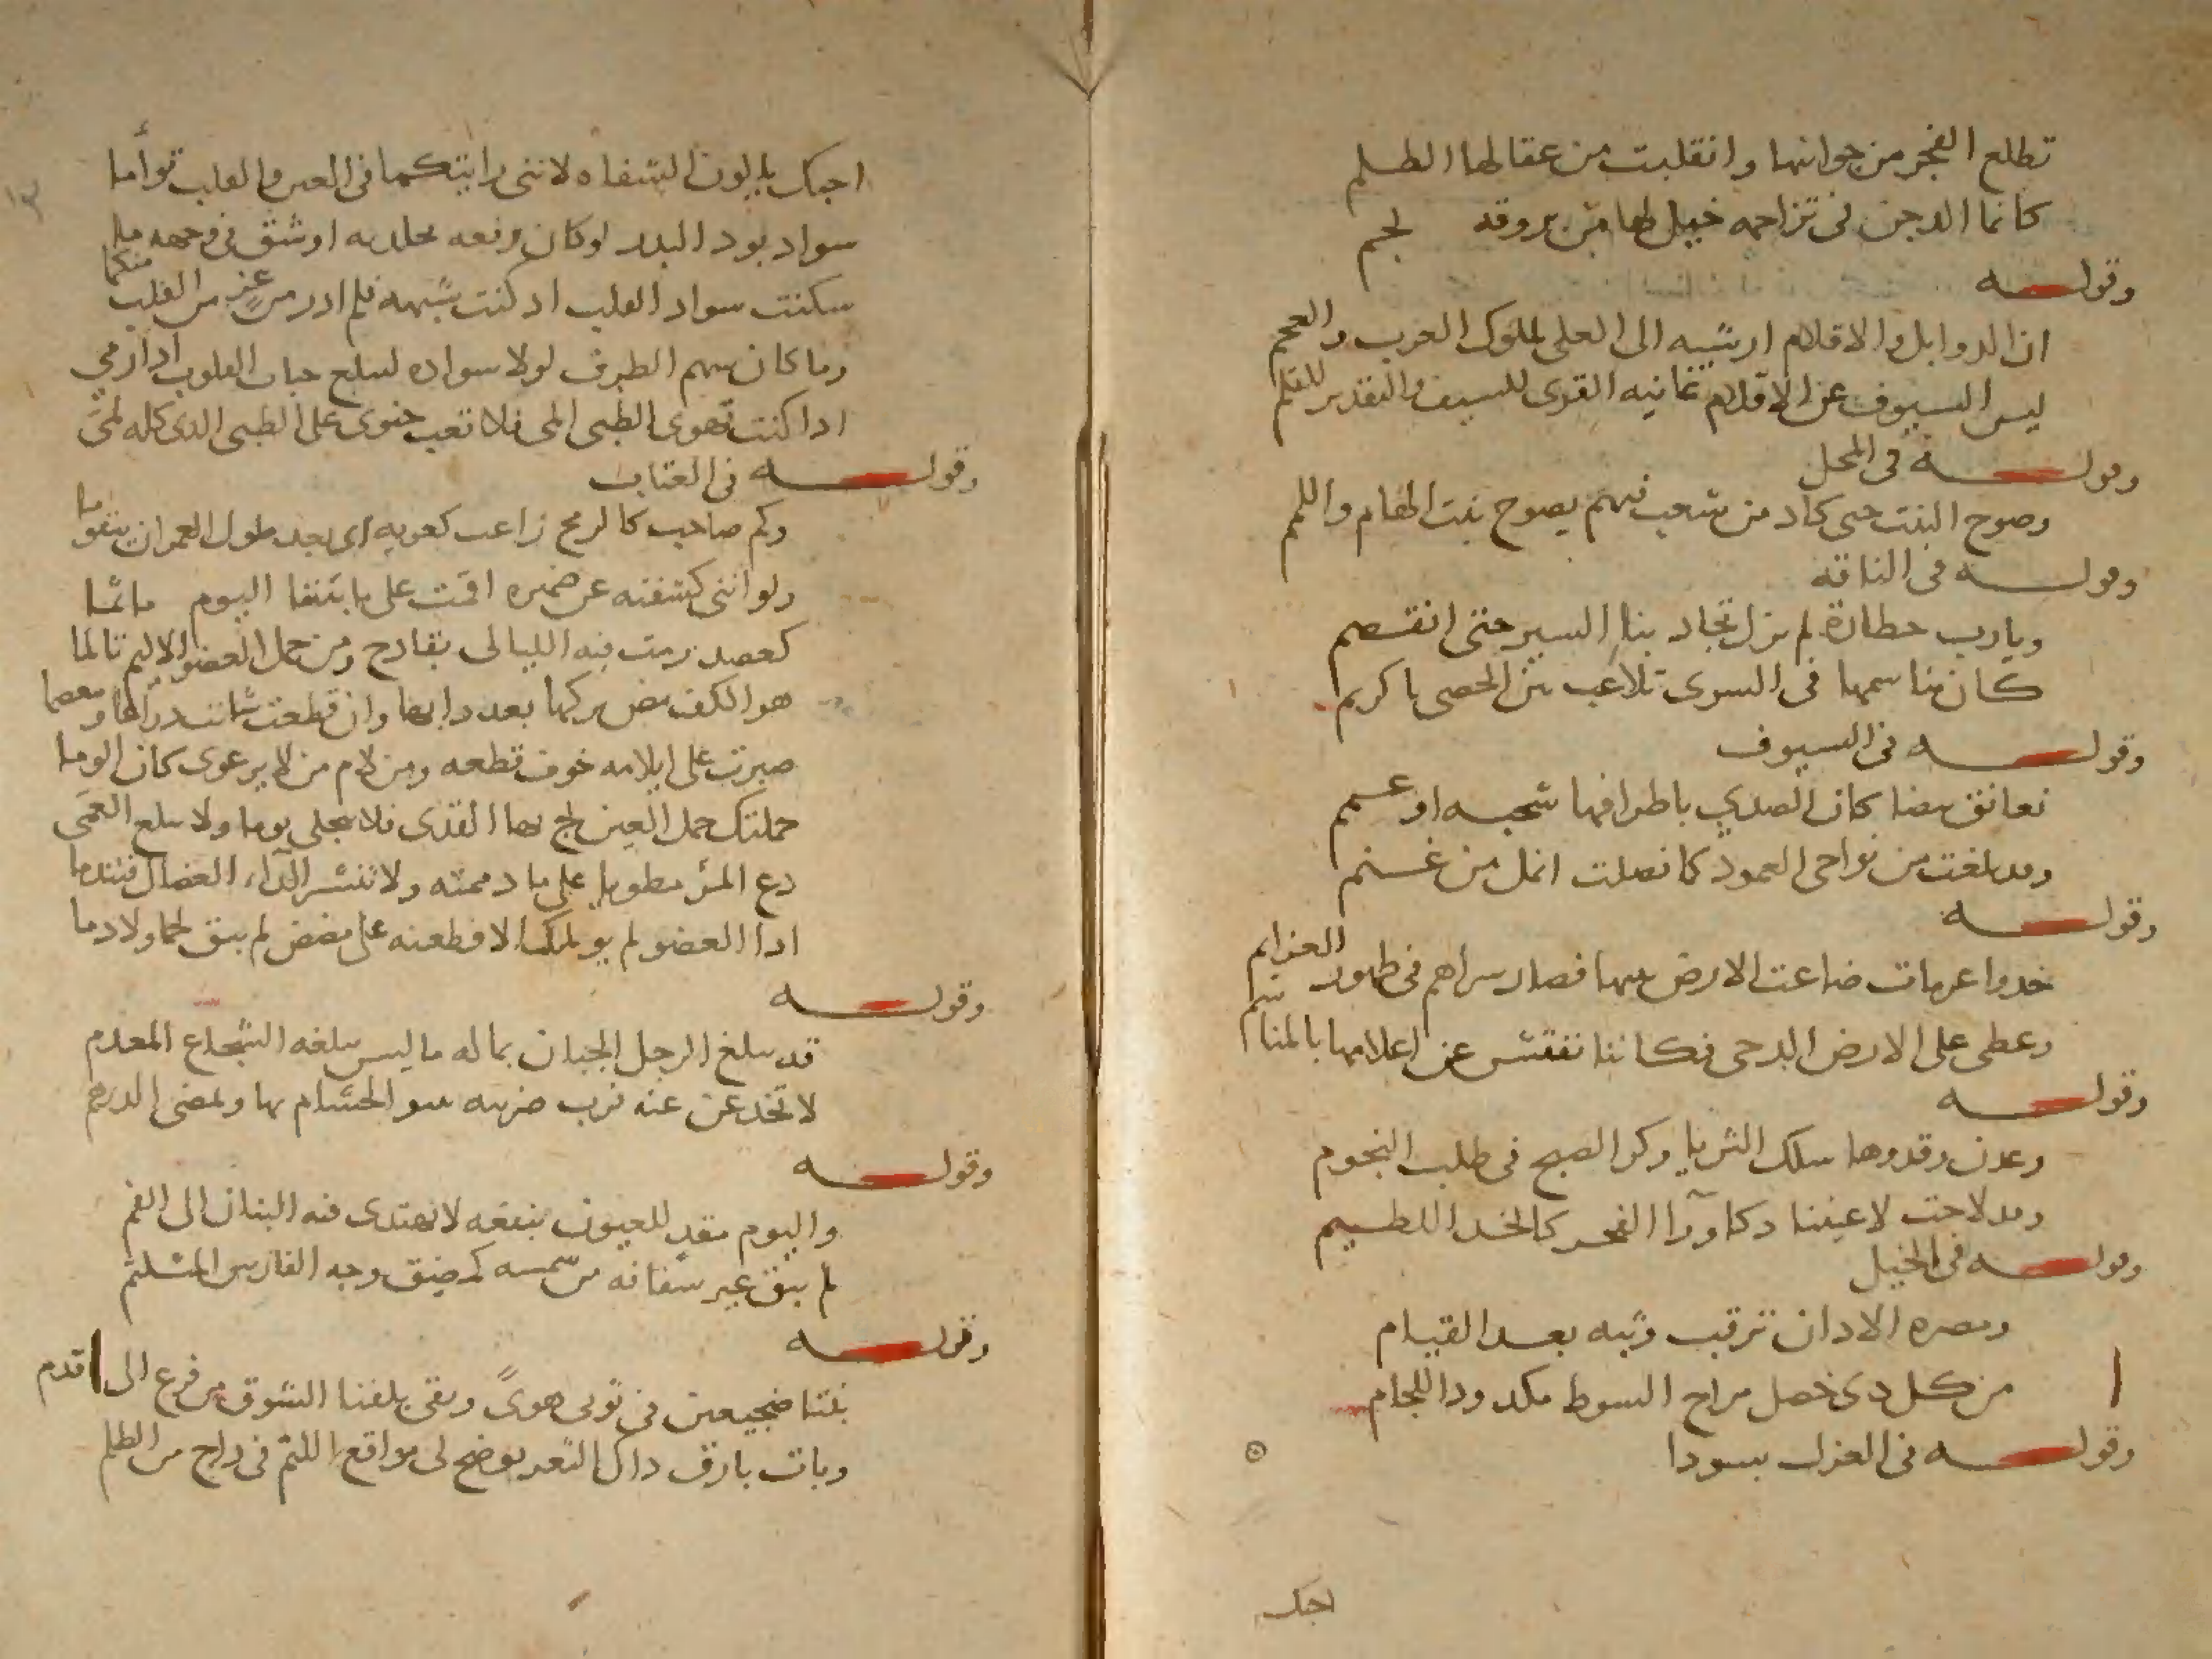 تطلع الفجر من جوانبها وانقلبت من عقالها الظلم
كانما الدجن فى تزاحمه خيل لها من بروقه لجم
وقوله
ان الذوابل والاقلام ارشيه الى العلى لملوك العرب والعجم
ليس السيوف عن الاقلام غانيه القرى للسيف والتقدير للقلم
وقوله فى المحل
وصوح النبت حتى كاد من شعب فيهم يصوح نبت الهام واللمم
وقوله فى الناقه
ويارب خطارة لم تزل تجاد بنا السير حتى انقصم
كان مناسمها فى السرى تلاعب بين الحصى يا كريم
وقوله فى السيوف
تعانق بيضا كان الصدى باطرافها شحبه او عسم
وقد بلغت من نواحى الغمود كما نصلت انمل من غنم
وقوله
خذوا عزمات ضاعت الارض بينها فصار سراهم فى ظهور العزايم
وغطى على الارض الدجى فكاننا نفتش عن اعلامها بالمناسم
وقوله
وعدن وقدوها سلك الثريا وكر الصبح فى طلب النجوم
وقد لاحت لاعيننا ذكا ورا الفجر كالخد اللطيم
وقوله فى الخيل
ومصره الاذان ترقب وثبه بعد القيام
من كل ذى خصل مراح السوط مكدود اللجام
وقوله فى الغزل بسودا
احبك
احبك يا لون الشفاه لاننى رايتكما فى العين والقلب توأما
سواد يود البدر لو كان رقعه بجلده او شق فى وجهه فما
سكنت سواد القلب اذ كنت شبهه فلم ادر من عز من القلب منكما
وما كان سهم الطرف لولا سواده ليبلغ حبات القلوب اذا رمى
اذا كنت تهوى الظبى المى فلا تعب جنونى على الظبى الذى كله لمى
وقوله فى العتاب
وكم صاحب كالرمح زاغت كعوبه ابى بعد طول الغمز ان يتقوما
ولو اننى كشفته عن ضميره اقمت على ما بيننا اليوم ماتما
كعضو رمت فيه الليالى بقادح ومن حمل العضو الاليم تالما
هو الكف مض تركها بعد دايها وان قطعت شانت ذراعا ومعصما
صبرت على ايلامه خوف قطعه ومن لام من لا يرعوى كان الوما
حملتك حمل العين لج بها القذى فلا ينجلى يوما ولا تبلغ العمى
دع المرء مطويا على ما ذممته ولا تنشر الداء العضال فتندما
اذا العضو لم يولمك الا قطعته على مضض لم يبق لحما ولا دما
وقوله
قد يبلغ الرجل الجبان بماله ما ليس يبلغه الشجاع المعدم
لا تخدعن عنه فرب ضريبه ينبو الحسام بها ويمضى الدرهم
وقوله
واليوم مقذ للعيون بنقعه لا تهتدى فيه البنان الى الفم
لم يبق غير شفافه من شمسه كمضيق وجه الفارس المتلثم
وقوله
بتنا ضجيعين فى ثوبى هوى وتقى يلفنا الشوق من فرع الى قدم
وبات بارق ذاك الثغر يوضح لى مواقع اللثم فى داج من الظلم